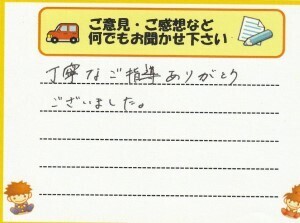 ご意見・ご感想など
何でもお聞かせ下さい
丁寧なご指導ありがとう
ございました。